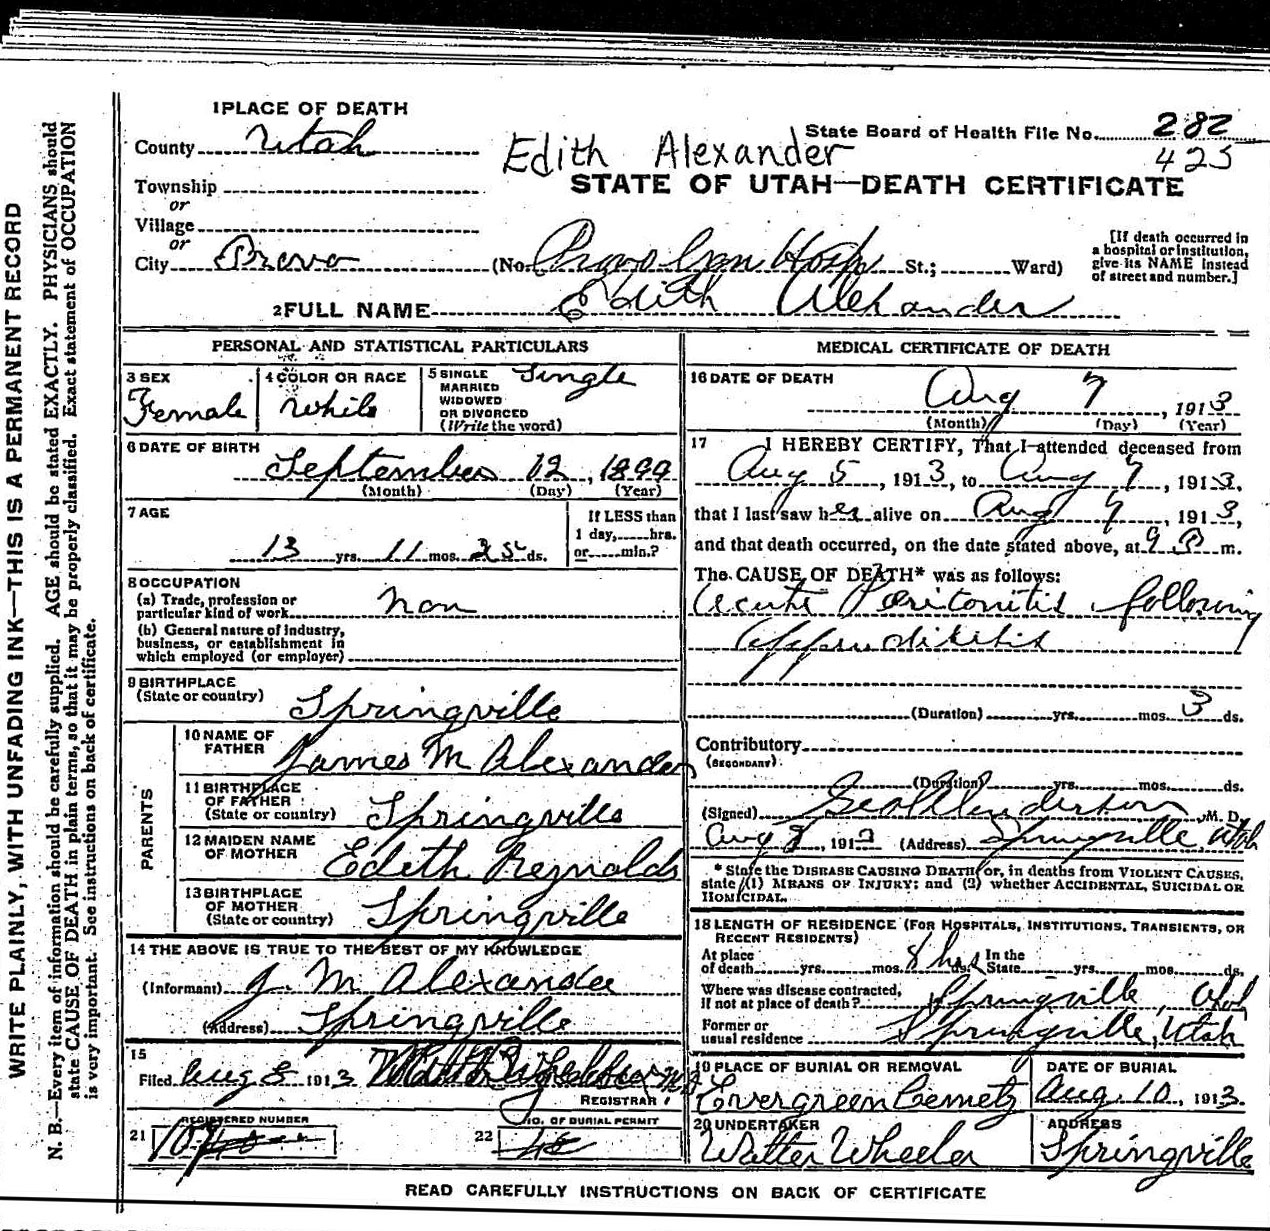 WRITE PLAINLY, WITH UNFADING INK—THIS IS A PERMANENT RECORD
N. B.—Every item of information should be carefully supplied. AGE should be stated EXACTLY. PHYSICIANS should
state CAUSE OF DEATH in plain terms, so that it may be properly classified. Exact statement of OCCUPATION
is very important. See instructions on back of certificate.
1 PLACE OF DEATH
County Utah
State Board of Health File No. 282
Edith Alexander
425
STATE OF UTAH—DEATH CERTIFICATE
Township
or
Village
or
City Provo (No. Provo Gen Hosp St.; Ward)
[If death occurred in
a hospital or institution,
give its NAME instead
of street and number.]
2 FULL NAME Edith Alexander
PERSONAL AND STATISTICAL PARTICULARS
3 SEX
Female
4 COLOR OR RACE
White
5 SINGLE
MARRIED
WIDOWED
OR DIVORCED
(Write the word)
Single
6 DATE OF BIRTH
September 12, 1899
(Month) (Day) (Year)
7 AGE
13 yrs. 11 mos. 25 ds.
If LESS than
1 day, hrs.
or min.?
8 OCCUPATION
(a) Trade, profession or
particular kind of work non
(b) General nature of industry,
business, or establishment in
which employed (or employer)
9 BIRTHPLACE
(State or country)
Springville
PARENTS
10 NAME OF
FATHER
James M Alexander
11 BIRTHPLACE
OF FATHER
(State or country)
Springville
12 MAIDEN NAME
OF MOTHER
Edith Reynolds
13 BIRTHPLACE
OF MOTHER
(State or country)
Springville
14 THE ABOVE IS TRUE TO THE BEST OF MY KNOWLEDGE
(Informant) J. M Alexander
(Address) Springville
15
Filed Aug 8 1913
REGISTRAR
REGISTERED NUMBER
21
NO. OF BURIAL PERMIT
22
MEDICAL CERTIFICATE OF DEATH
16 DATE OF DEATH
Aug 7, 1913
(Month) (Day) (Year)
17 I HEREBY CERTIFY, That I attended deceased from
Aug 5, 1913, to Aug 7, 1913,
that I last saw her alive on Aug 7, 1913,
and that death occurred, on the date stated above, at 9 P m.
The CAUSE OF DEATH* was as follows:
Acute Peritonitis following
Appendicitis
(Duration) yrs. mos. 3 ds.
Contributory
(SECONDARY)
(Duration) yrs. mos. ds.
(Signed) Geo Anderson, M. D.
Aug 8, 1913 (Address) Springville Utah
* State the DISEASE CAUSING DEATH or, in deaths from VIOLENT CAUSES,
state (1) MEANS OF INJURY; and (2) whether ACCIDENTAL, SUICIDAL OR
HOMICIDAL.
18 LENGTH OF RESIDENCE (FOR HOSPITALS, INSTITUTIONS, TRANSIENTS, OR
RECENT RESIDENTS)
At place
of death yrs. mos. 8 hrs ds. In the State yrs. mos. ds.
Where was disease contracted,
if not at place of death? Springville, Utah
Former or
usual residence Springville, Utah
19 PLACE OF BURIAL OR REMOVAL
Evergreen Cemety
DATE OF BURIAL
Aug. 10, 1913.
20 UNDERTAKER
Walter Wheeler
ADDRESS
Springville
READ CAREFULLY INSTRUCTIONS ON BACK OF CERTIFICATE